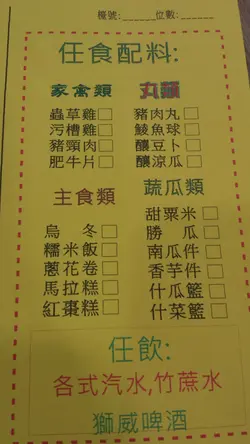 檯號:______位數:______
任食配料:
家禽類
蟲草雞□
污槽雞□
豬頸肉□
肥牛片□
丸類
豬肉丸□
鯪魚球□
釀豆卜□
釀涼瓜□
主食類
烏冬□
糯米飯□
蔥花卷□
馬拉糕□
紅棗糕□
蔬瓜類
甜粟米□
勝瓜□
南瓜件□
香芋件□
什瓜籃□
什菜籃□
任飲:
各式汽水,竹蔗水
獅威啤酒